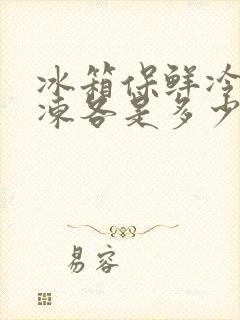 冰箱保鲜冷
冻各是多少
易容